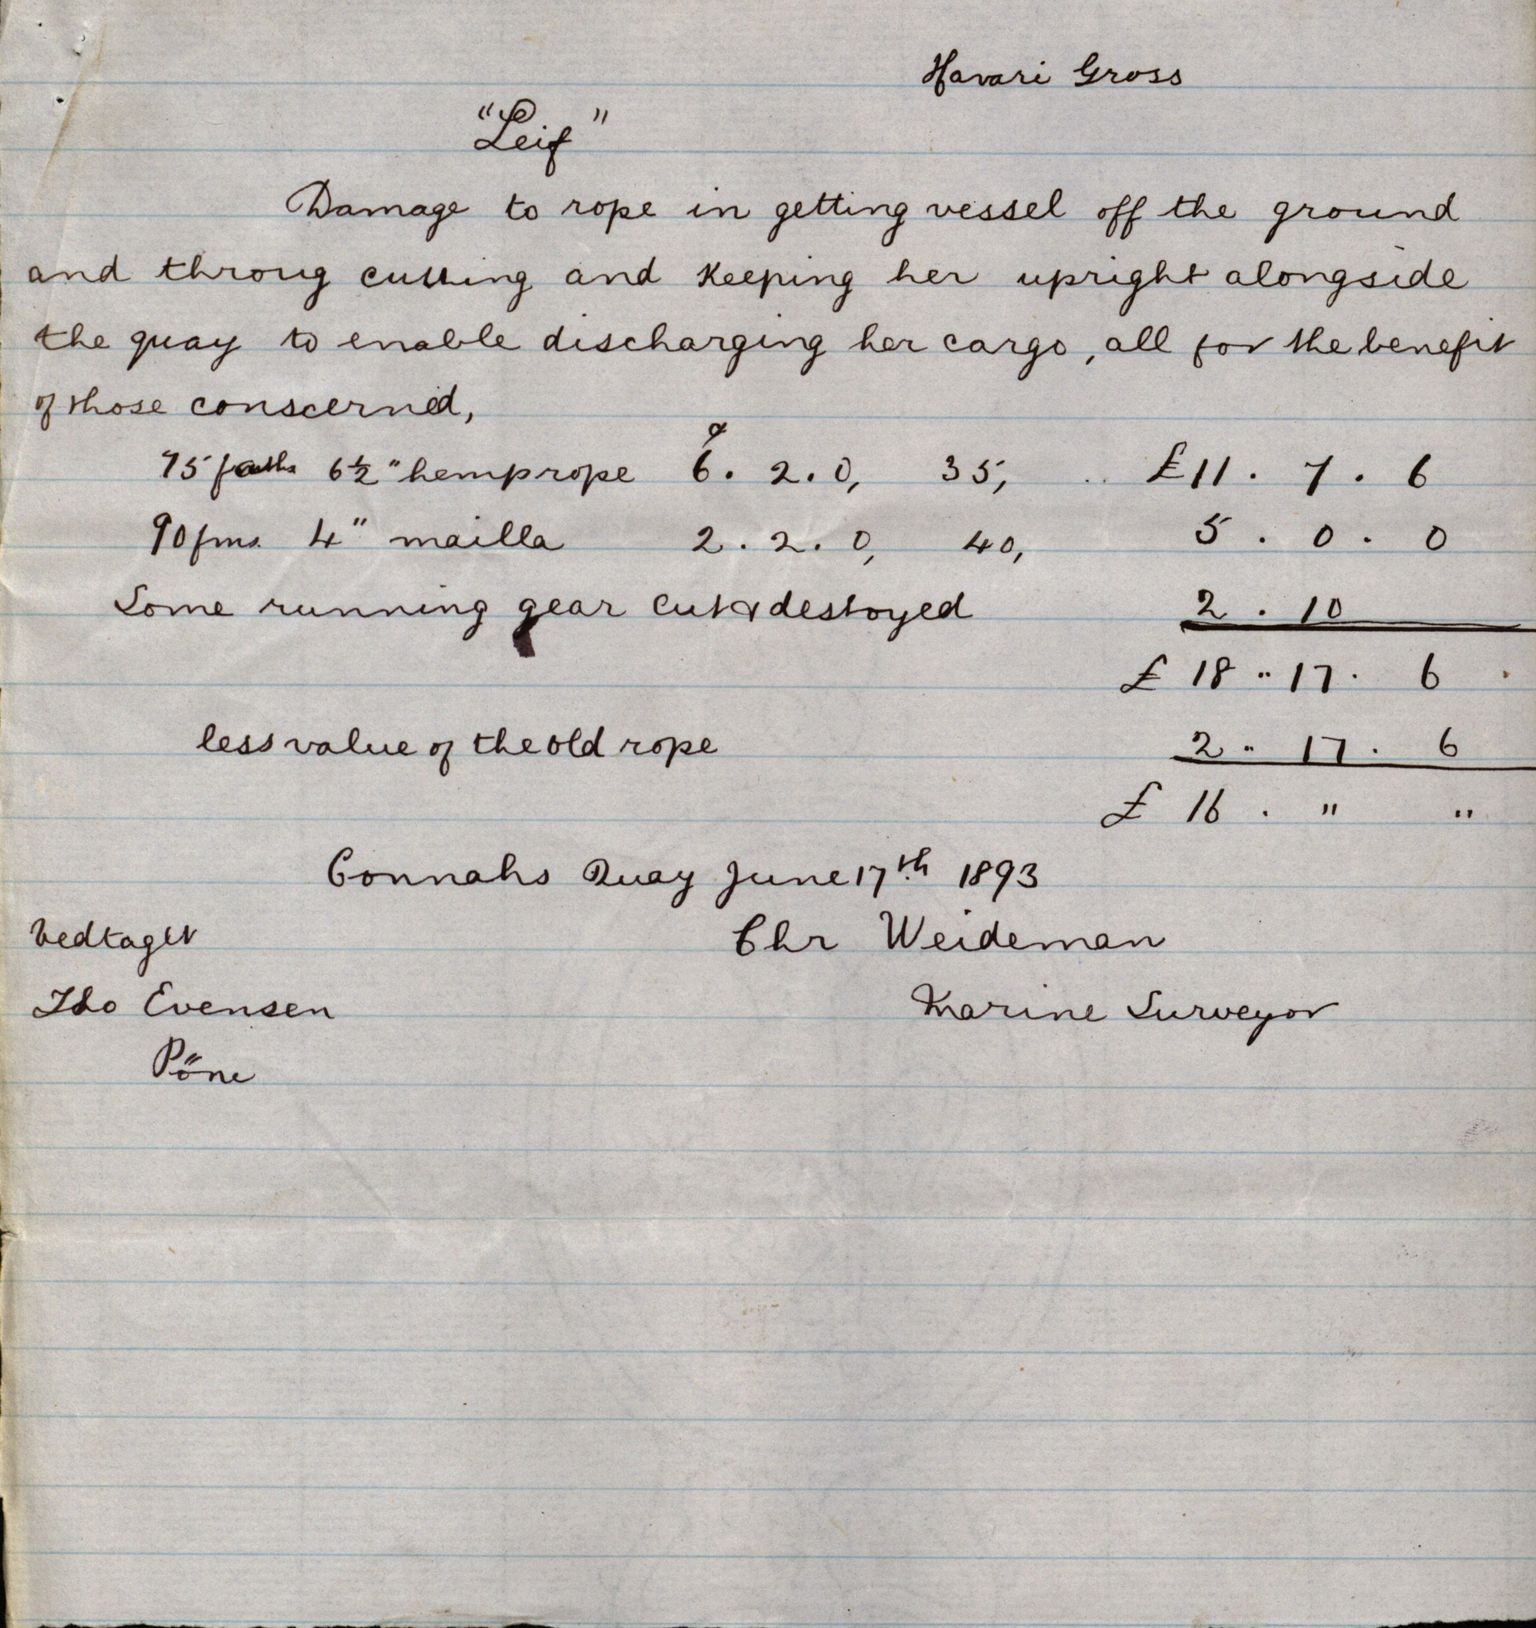 Havari Gross
"Leif"
Damage to rope in getting vessel off the ground
and throug cutting and keeping her upright alongside
the quay to enable discharging her cargo, all for the benefit
of those conscerned,
75 faths 6½" hemprope 6. 2. 0, 35, £11. 7. 6
90 fms. 4" mailla 2. 2. 0, 40, 5. 0. 0
Some running gear cut & destoyed 2. 10
£ 18 .. 17. 6
less value of the old rope 2 .. 17. 6
£ 16 . " "
Connahs Quay June 17th 1893
Vedtaget Chr Weideman
Evensen Marine Surveyor